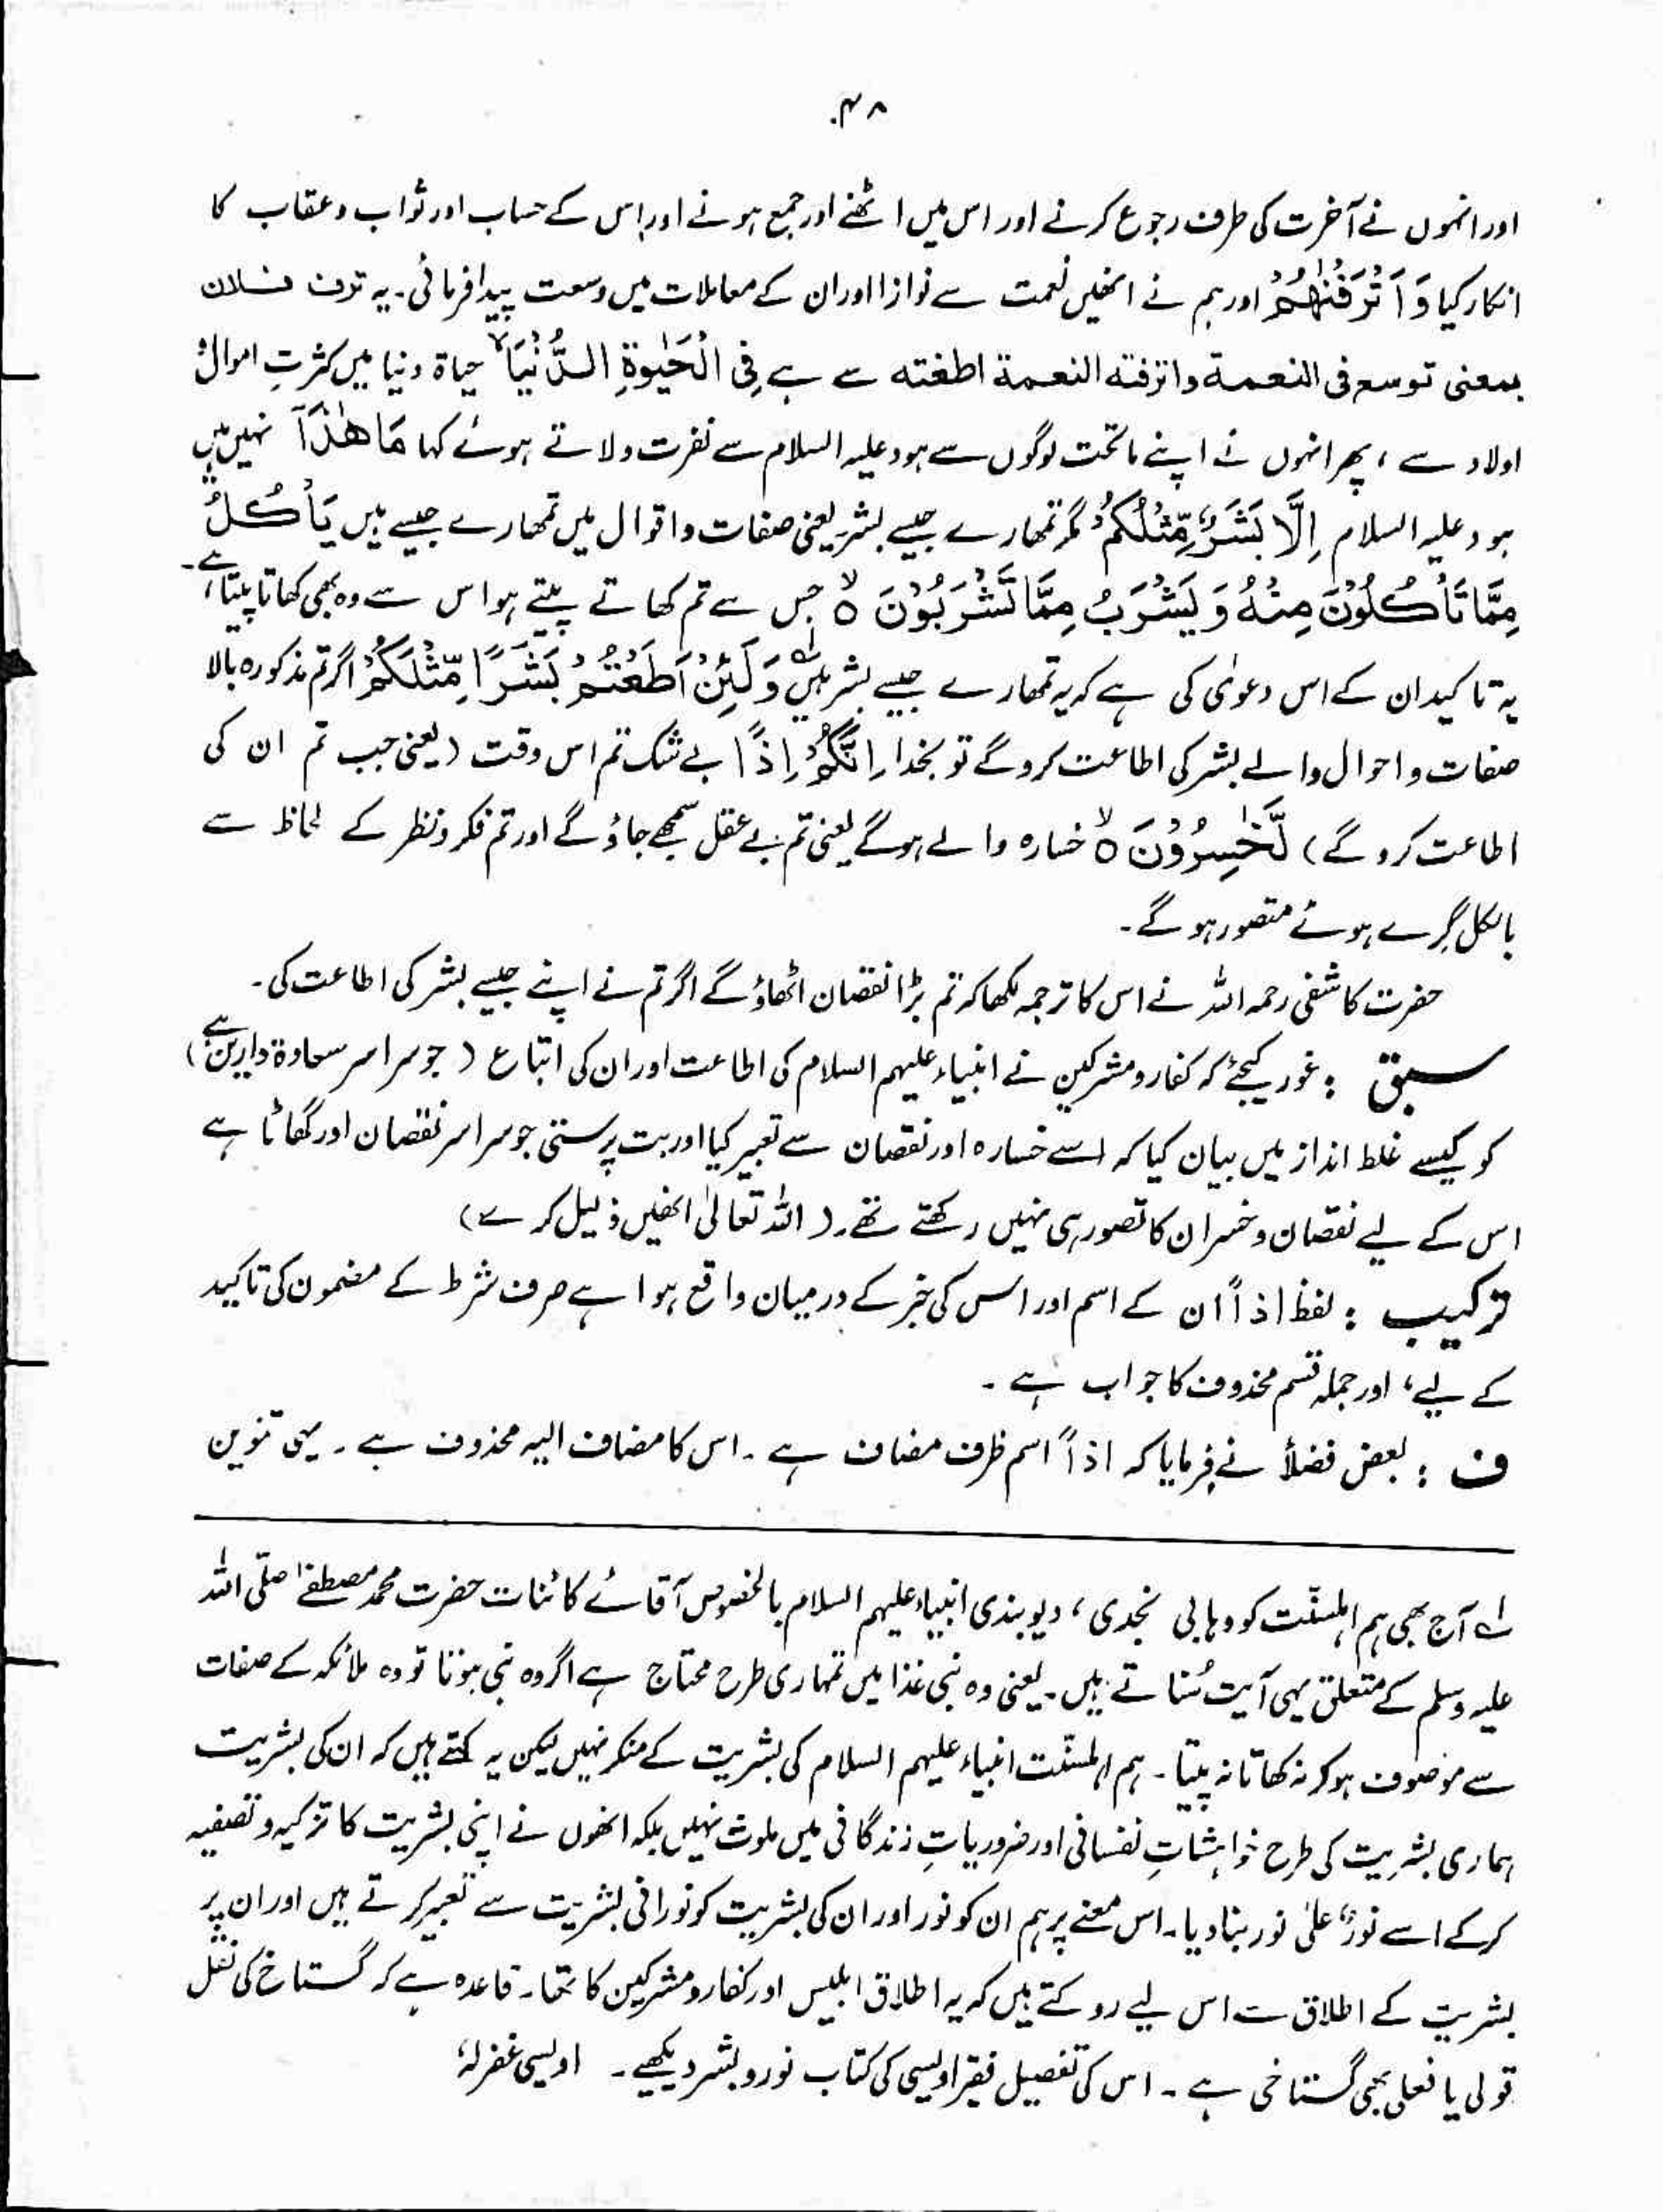 ۴۸
اور انہوں نے آخرت کی طرف رجوع کرنے اور اس میں اٹھنے اور جمع ہونے اور اس کے حساب اور ثواب و عقاب کا
انکار کیا وَ اَتْرَفْنٰهُمْ اور ہم نے انھیں نعمت سے نوازا اور ان کے معاملات میں وسعت پیدا فرمائی۔ یہ ترف فلان
بمعنی توسع فی النعمة و اترفته النعمة اطغته سے ہے فِی الْحَیٰوةِ الدُّنْیَا ۙ حیاة دنیا میں کثرتِ اموال و
اولاد سے ، پھر انہوں نے اپنے ماتحت لوگوں سے ہود علیہ السلام سے نفرت دلاتے ہوئے کہا مَا هٰذَآ نہیں ہیں
ہود علیہ السلام اِلَّا بَشَرٌ مِّثْلُكُمْ مگر تمھارے جیسے بشر یعنی صفات و اقوال میں تمھارے جیسے ہیں یَاْكُلُ
مِمَّا تَاْكُلُوْنَ مِنْهُ وَ یَشْرَبُ مِمَّا تَشْرَبُوْنَ ۙ٥ جس سے تم کھاتے پیتے ہو اس سے وہ بھی کھاتا پیتا ہے۔
یہ تاکید ان کے اس دعوٰی کی ہے کہ یہ تمھارے جیسے بشر ہیں لہ وَ لَئِنْ اَطَعْتُمْ بَشَرًا مِّثْلَكُمْ اگر تم مذکورہ بالا
صفات و احوال والے بشر کی اطاعت کرو گے تو بخدا اِنَّكُمْ اِذًا بے شک تم اس وقت (یعنی جب تم ان کی
اطاعت کرو گے) لَّخٰسِرُوْنَ ۙ٥ خسارہ والے ہو گے یعنی تم بے عقل سمجھے جاؤ گے اور تم فکر و نظر کے لحاظ سے
بالکل گرے ہوئے متصور ہو گے۔
حضرت کاشفی رحمہ اللہ نے اس کا ترجمہ لکھا کہ تم بڑا نقصان اٹھاؤ گے اگر تم نے اپنے جیسے بشر کی اطاعت کی۔
سبق : غور کیجئے کہ کفار و مشرکین نے انبیاء علیہم السلام کی اطاعت اور ان کی اتباع (جو سراسر سعادة دارین ہے)
کو کیسے غلط انداز میں بیان کیا کہ اسے خسارہ اور نقصان سے تعبیر کیا اور بت پرستی جو سراسر نقصان اور گھاٹا ہے
اس کے لیے نقصان و خسران کا تصور ہی نہیں رکھتے تھے۔ (اللہ تعالیٰ انھیں ذلیل کرے)
ترکیب : لفظ اذاً ان کے اسم اور اس کی خبر کے درمیان واقع ہوا ہے صرف شرط کے مضمون کی تاکید
کے لیے، اور جملہ قسم محذوف کا جواب ہے ۔
ف : بعض فضلأ نے فرمایا کہ اذاً اسم ظرف مضاف ہے ۔ اس کا مضاف الیہ محذوف ہے ۔ یہی تنوین
لہ آج بھی ہم اہلسنّت کو وہابی نجدی ، دیوبندی انبیاء علیہم السلام بالخصوص آقائے کائنات حضرت محمد مصطفےٰ صلّی اللہ
علیہ وسلم کے متعلق یہی آیت سُناتے ہیں۔ یعنی وہ نبی غذا میں تمہاری طرح محتاج ہے اگر وہ نبی ہوتا تو وہ ملائکہ کے صفات
سے موصوف ہو کر نہ کھاتا نہ پیتا ۔ ہم اہلسنّت انبیاء علیہم السلام کی بشریت کے منکر نہیں لیکن یہ کہتے ہیں کہ ان کی بشریت
ہماری بشریت کی طرح خواہشاتِ نفسانی اور ضروریاتِ زندگانی میں ملوث نہیں بلکہ انھوں نے اپنی بشریت کا تزکیہ و تصفیہ
کر کے اسے نورٌ علیٰ نور بنا دیا۔ اس معنے پر ہم ان کو نور اور ان کی بشریت کو نورانی بشریت سے تعبیر کرتے ہیں اور ان پر
بشریت کے اطلاق سے اس لیے روکتے ہیں کہ یہ اطلاق ابلیس اور کفار و مشرکین کا تھا۔ قاعدہ ہے کہ گستاخ کی نقل
قولی یا فعلی بھی گستاخی ہے ۔ اس کی تفصیل فقیر اویسی کی کتاب نور و بشر دیکھیے ۔ اویسی غفرلہٗ